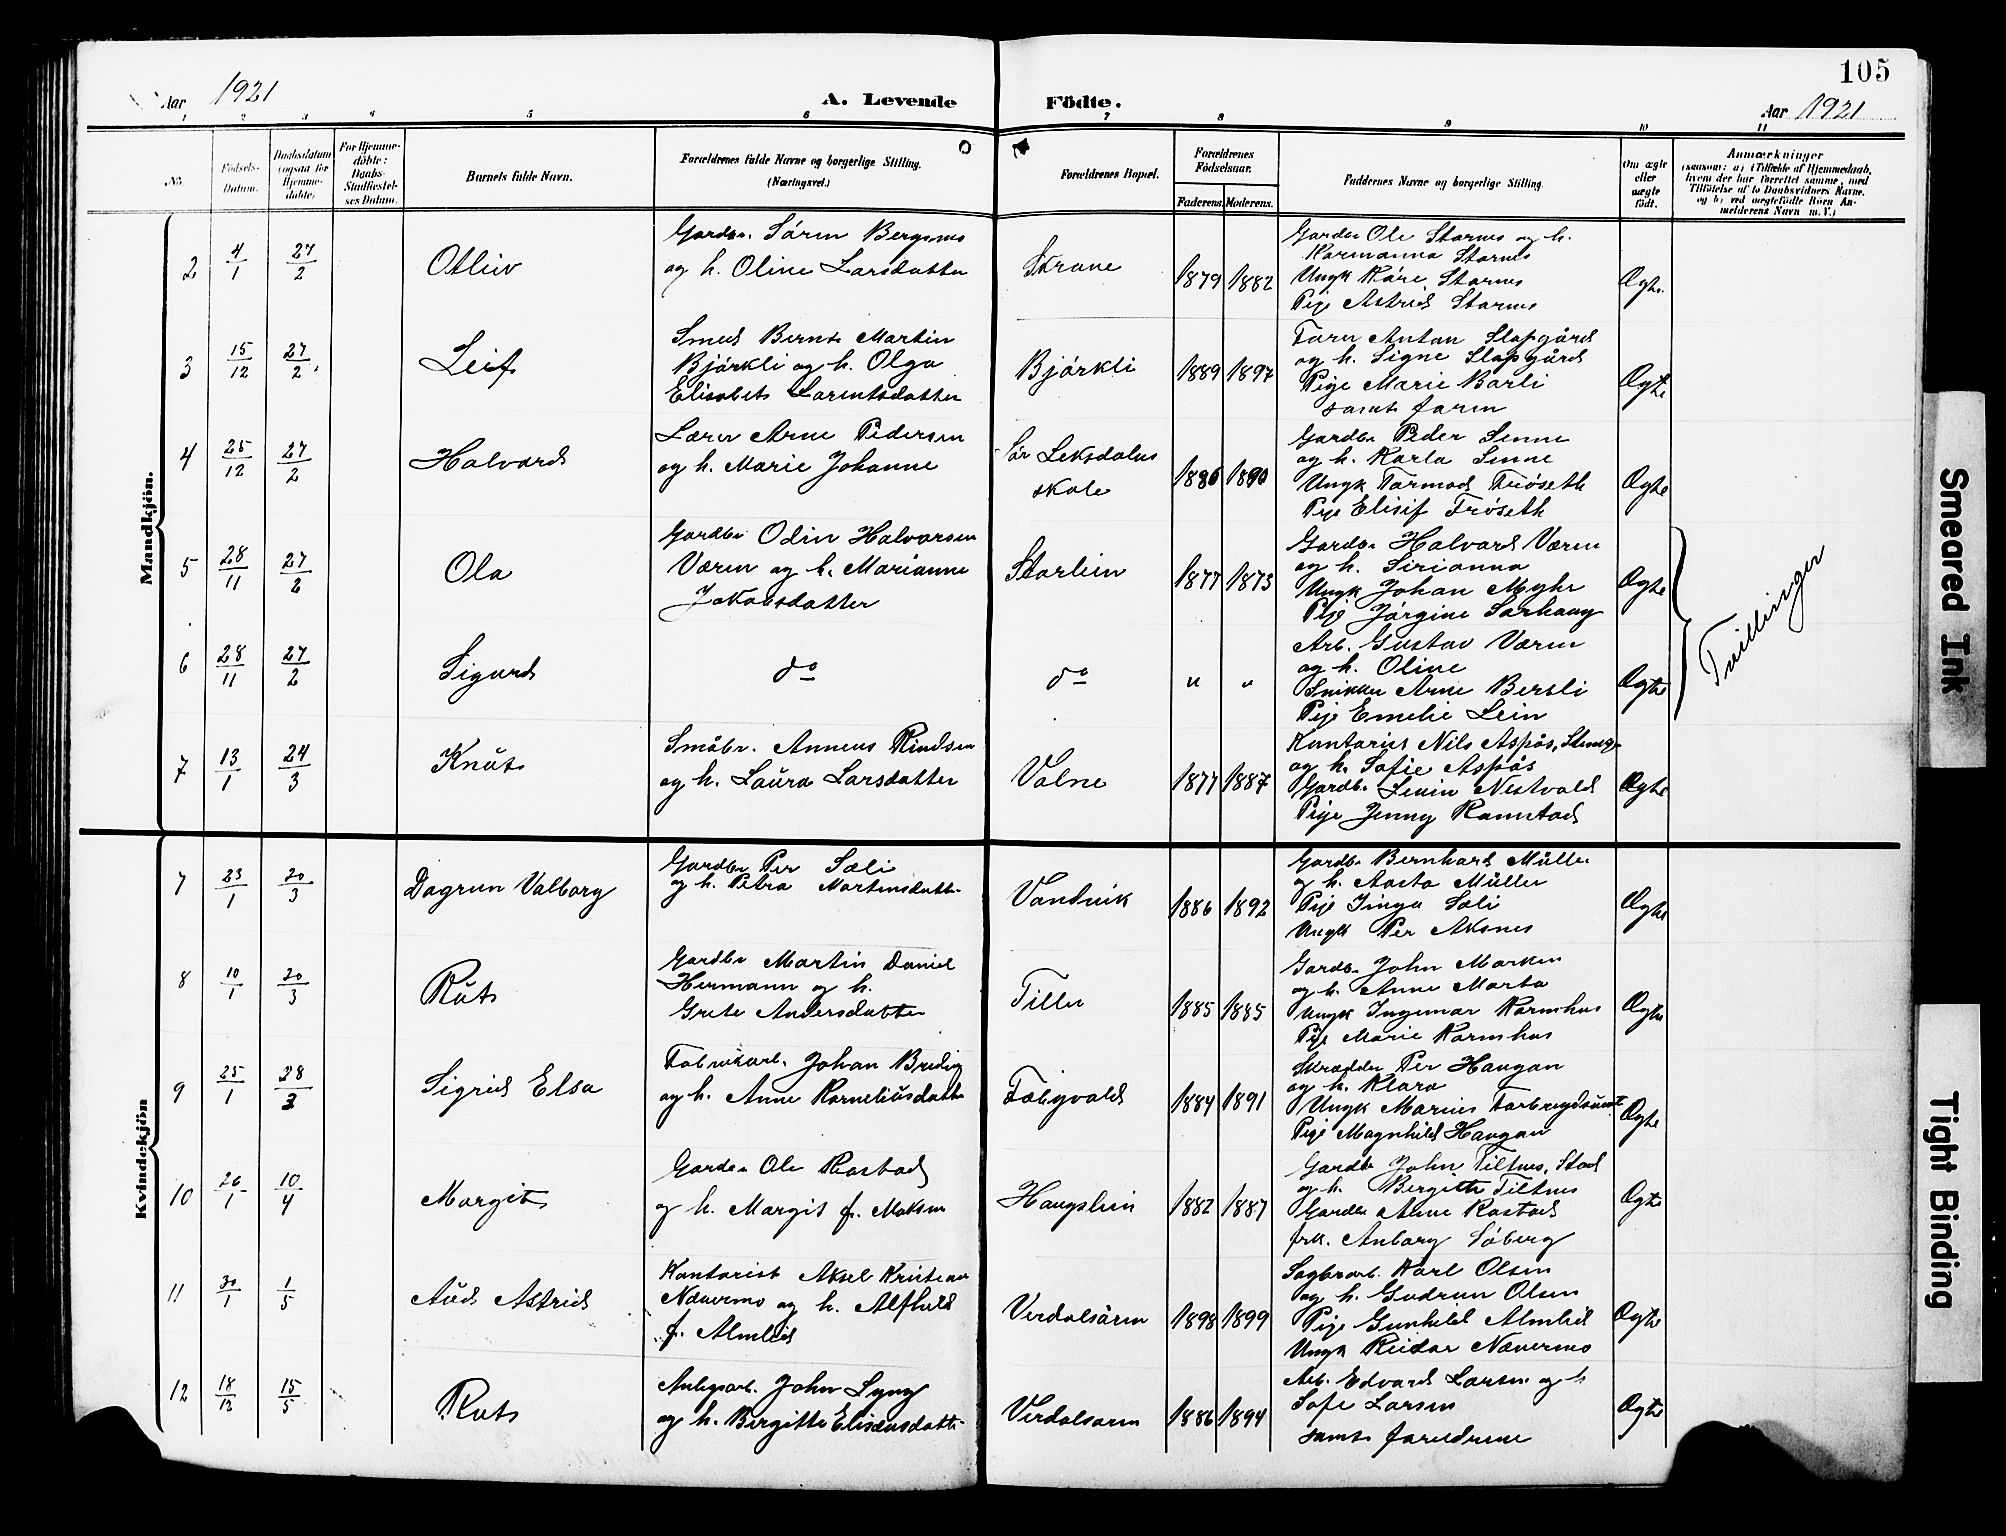 105
Aar 1921
A. Levende Födte.
Aar 1921
1 2 3 4 5 6 7 8 9 10 11
No.
Födsels-Datum.
Daabsdatum (ogsaa for Hjemme-döbte)
For Hjemme-döbte: Daabs-Stadfæstel-ses Datum.
Barnets fulde Navn.
Forældrenes fulde Navne og borgerlige Stilling.
(Næringsvei.)
Forældrenes Bopæl.
Forældrenes Födselsaar.
Faderens. Moderens.
Faddernes Navne og borgerlige Stilling.
Om ægte eller uægte födt.
Anmærkninger
(saasom: a) i Tilfælde af Hjemmedaab, hvem der har forrettet samme, med Tilföielse af to Daabsvidners Navne, og b) ved uægtefödte Börn An-melderens Navn m. V.)
Mandkjön.
2 4/1 27/2 Otliiv
Gardbr. Sören Bergsmo
og h. Oline Larsdatter
Skrove 1879 1882
Gardbr Ole Stornes og h.
Karmanna Stornes
Ungk Kåre Stornes
Pige Astrid Stornes
Ægte.
3 15/12 27/2 Leif
Smed Bernt Martin
Bjørkli og h. Olga
Elisabet Larentsdatter
Bjørkli 1889 1897
Faren Anton Slapgård
og h. Signe Slapgård
Pige Marie Borli
samt faren
Ægte
4 25/12 27/2 Halvard
Lærer Arne Pedersen
og h. Marie Johanne
Sör Leksdalens
skole 1886 1890
Gardbr Peder Senne
og h. Karla Senne
Ungk Tormod Frøseth
Pige Elisif Frøseth
Ægte
5 28/11 27/2 Ola
Gardbr Odin Halvorsen
Væren og h. Marianne
Jakobsdatter
Storlein 1877 1873
Gardbr Halvard Væren
og h. Sirianna
Ungk Johan Myhr
Pige Jørgine Sørhaug
Ægte
6 28/11 27/2 Sigurd
do do " "
Arb. Gustav Væren
og h. Oline
Snikker Arne Bersli
Pige Emelie Lein
Ægte
Tvillinger
7 13/1 24/3 Knut
Småbr. Anneus Rindsem
og h. Laura Larsdatter
Volne 1877 1887
Kontorist Nils Aspås,
og h. Sofie Aspås
Gardbr Nestvold
Pige Jenny Ramstad
Ægte
Kvindekjön
7 23/1 20/3 Dagrun Valborg
Gardbr Per Sæli
og h. Petra Martinsdatter
Vandvik 1886 1892
Gardbr Bernhard Müller
og h. Aasta Müller
Pige Inga Sæli
Ungk Per Aksnes
Ægte
8 10/1 20/3 Rut
Gardbr Martin Daniel
Hermann og h.
Grete Andersdatter
Tiller 1885 1885
Gardbr John Marken
og h. Anne Marta
Ungk Ingemar Karmhus
Pige Marie Karmhus
Ægte
9 25/1 28/3 Sigrid Elsa
Fabrikarb. Johan Bredig
og h. Anne Korneliusdatter
Fæbyvald 1884 1891
Skrædder Per Haugan
og h. Klara
Ungk Marius
Pige Magnhild Haugan
Ægte
10 26/1 10/4 Margit
Gardbr Ole Rostad
og h. Margit f. Moksnes
Haugslein 1882 1887
Gardbr John Tiltnes, Stod
og h. Bergitte Tiltnes
Gardbr Arne Rostad
frk. Anborg Söberg
Ægte
11 30/1 1/5 Aud Astrid
Kontorist Aksel Kristian
Nævermo og h. Alfhild
f. Almlid
Verdalsören 1898 1899
Sagbrarb. Karl Olsen
og h. Gudrun Olsen
Pige Gunhild Almlid
Ungk Reidar Nævermo
Ægte
12 18/12 15/5 Rut
Anlegsarb. John Lyng
og h. Bergitte Eliseusdatter
Verdalsören 1886 1894
Arb. Edvard Larsen og h
Sofie Larsen
samt foreldrene
Ægte
Smeared Ink
Tight Binding